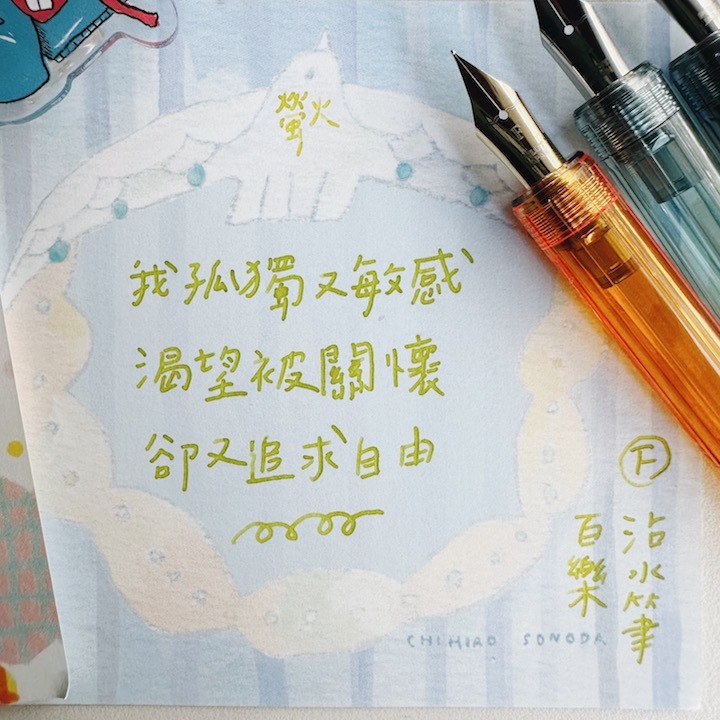 螢火
我孤獨又敏感
渴望被關懷
卻又追求自由
F
沾水筆
百樂
CHIHIRO SONODA